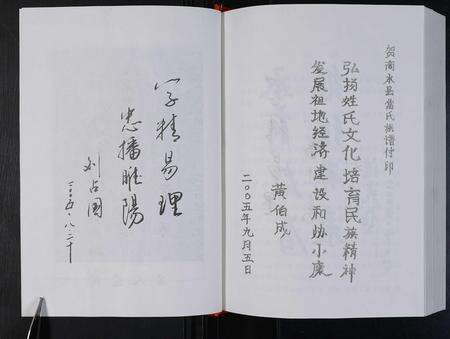 贺商水县雷氏族谱付印
弘扬姓氏文化 培育民族精神
发展祖地经济 建设和协小康
黄伯成
二〇〇五年九月五日
学精易理
忠播睢陽
刘占国
二〇〇五·八·二十